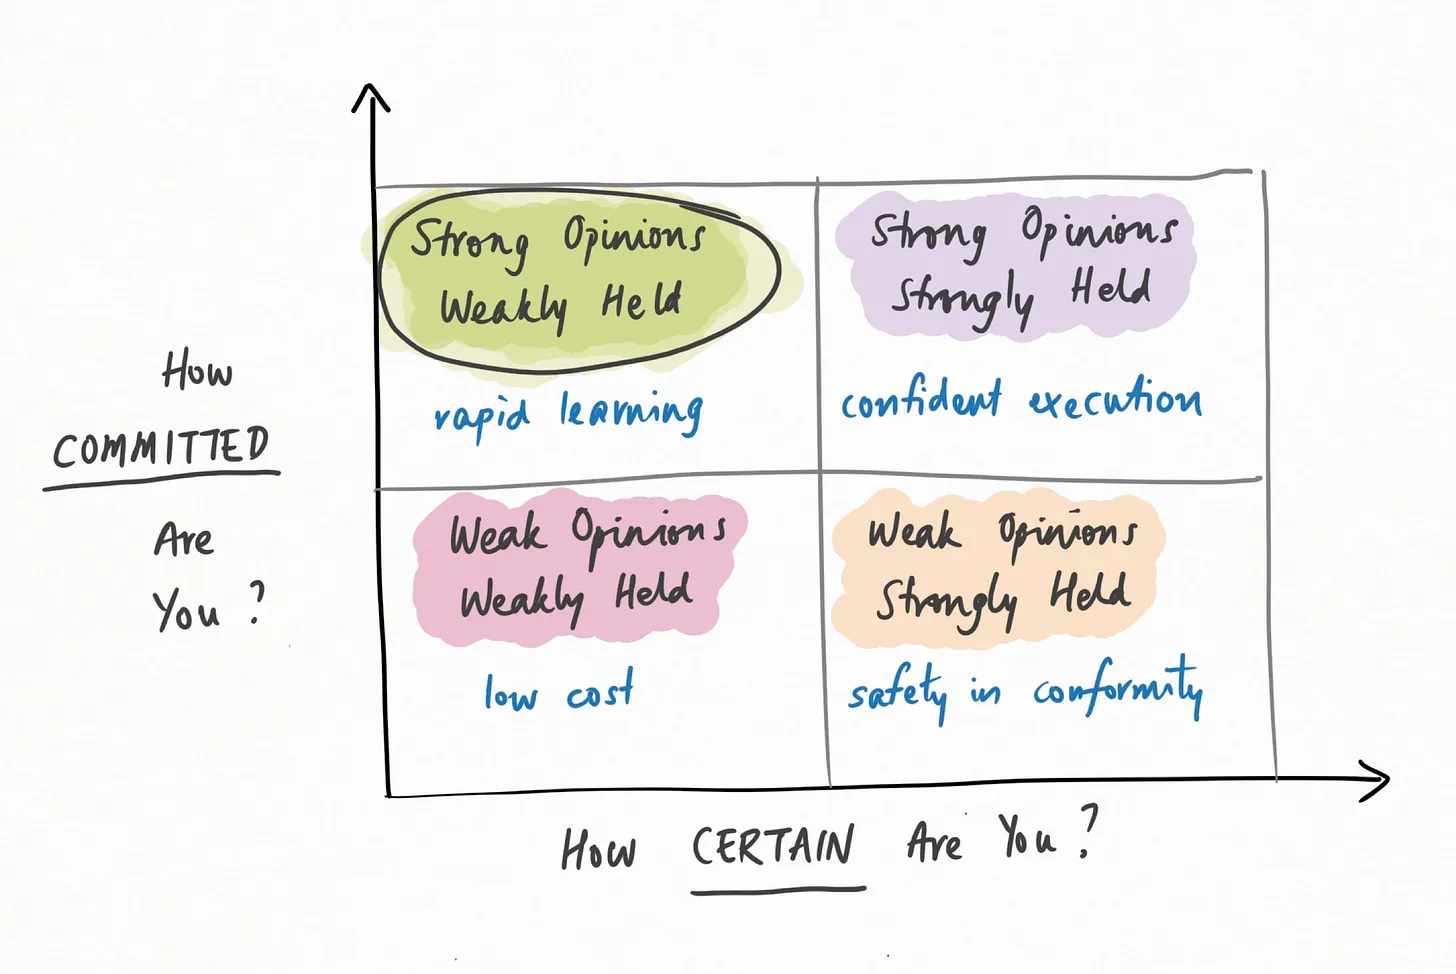 Strong Opinions
Weakly Held
rapid learning
Strong Opinions
Strongly Held
confident execution
How
COMMITTED
Are
You?
Weak Opinions
Weakly Held
low cost
Weak Opinions
Strongly Held
safety in conformity
How CERTAIN Are You?